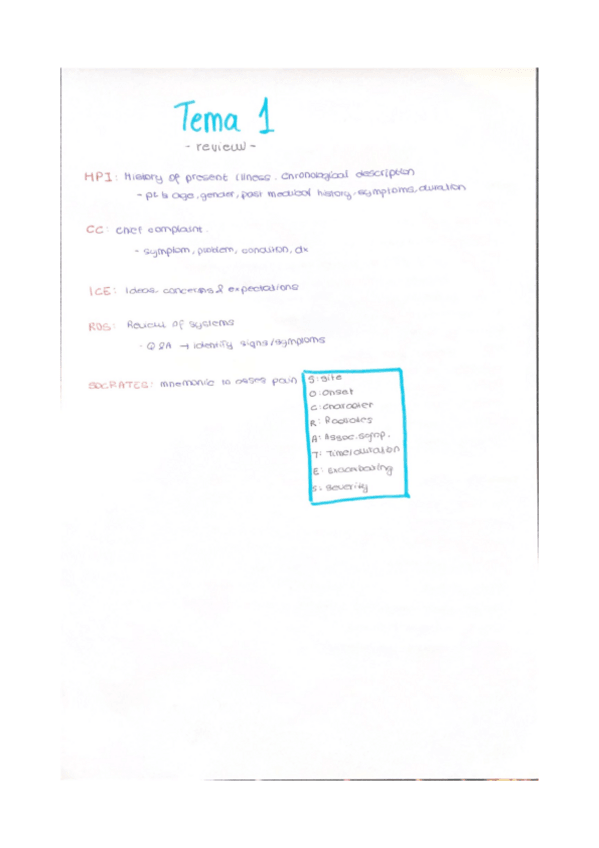 Tema 1
- review -
HPI: History of present illness. chronological description
- pt's age, gender, past medical history, symptoms, duration
CC: chief complaint.
- symptom, problem, condition, dx
ICE: Ideas, concerns & expectations
ROS: Review of systems
- Q&A → identify signs/symptoms
SOCRATES: mnemonic to asses pain
S: Site
O: Onset
C: Character
R: Radiates
A: Assoc. symp.
T: Time/duration
E: Exacerbating
S: Severity